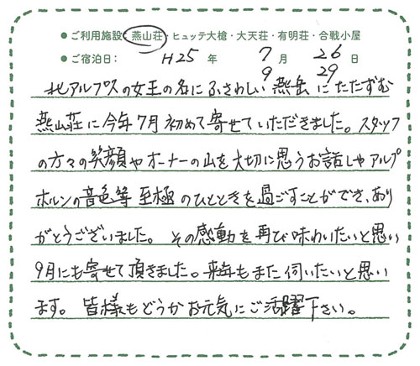 ●ご利用施設：燕山荘・ヒュッテ大槍・大天荘・有明荘・合戦小屋
●ご宿泊日： H25 年 7 月 26 日
9 29
北アルプスの女王の名にふさわしい燕岳にたたずむ
燕山荘に今年7月初めて寄せていただきました。スタッフ
の方々の笑顔やオーナーの山を大切に思うお話しやアルプ
ホルンの音色等 至極のひとときを過ごすことができ、あり
がとうございました。その感動を再び味わいたいと思い
9月にも寄せて頂きました。来年もまた伺いたいと思い
ます。皆様もどうかお元気にご活躍下さい。